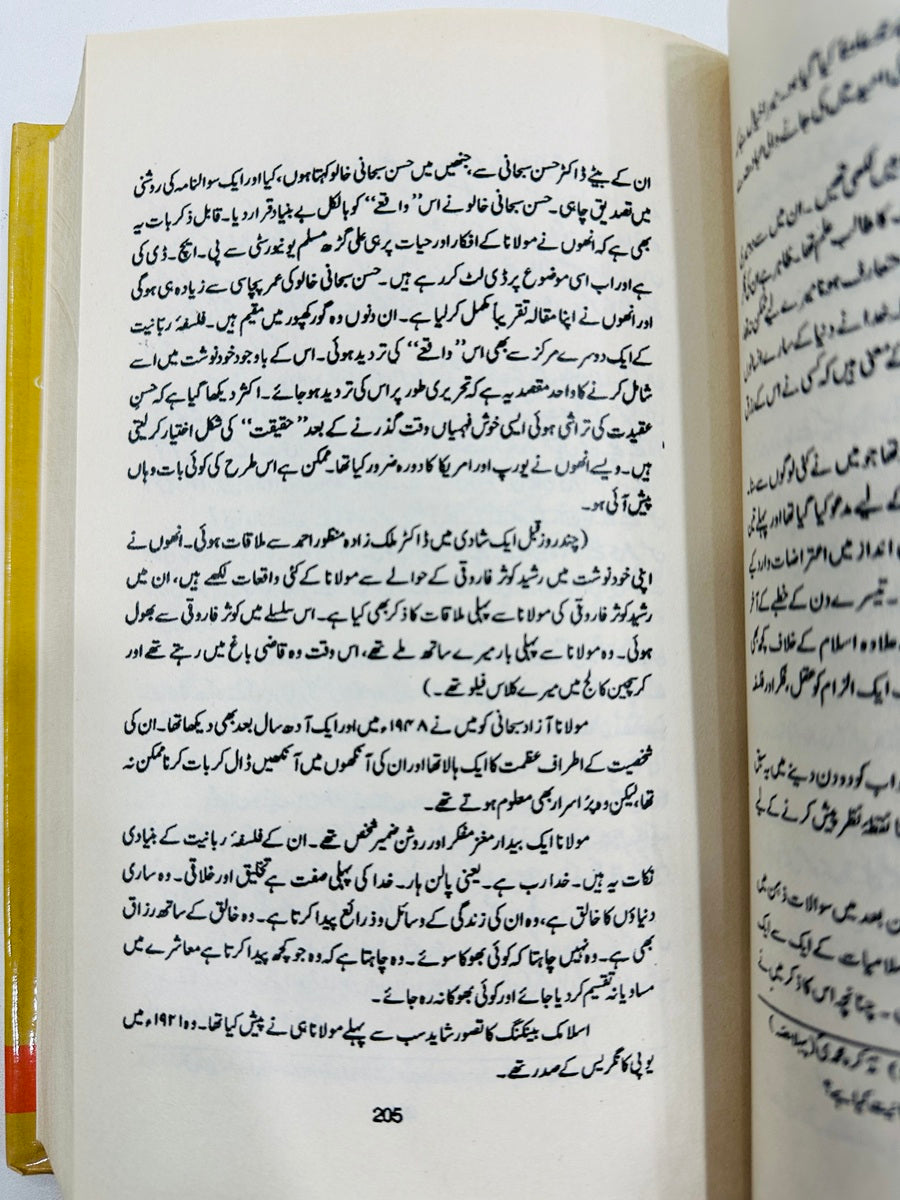 ان کے بیٹے ڈاکٹر حسن سبحانی سے، جنھیں میں حسن سبحانی خالو کہتا ہوں، کیا اور ایک سوالنامہ کی روشنی
میں تصدیق چاہی۔ حسن سبحانی خالو نے اس "واقعے" کو بالکل بے بنیاد قرار دیا۔ قابل ذکر بات یہ
بھی ہے کہ انھوں نے مولانا کے افکار اور حیات پر ہی علی گڑھ مسلم یونیورسٹی سے پی۔ ایچ۔ ڈی کی
ہے اور اب اسی موضوع پر ڈی لٹ کر رہے ہیں۔ حسن سبحانی خالو کی عمر پچاسی سے زیادہ ہی ہوگی
اور انھوں نے اپنا مقالہ تقریباً مکمل کر لیا ہے۔ ان دنوں وہ گورکھپور میں مقیم ہیں۔ فلسفۂ ربانیت
کے ایک دوسرے مرکز سے بھی اس "واقعے" کی تردید ہوئی۔ اس کے باوجود خودنوشت میں اسے
شامل کرنے کا واحد مقصد یہ ہے کہ تحریری طور پر اس کی تردید ہو جائے۔ اکثر دیکھا گیا ہے کہ حسنِ
عقیدت کی تراشی ہوئی ایسی خوش فہمیاں وقت گذرنے کے بعد "حقیقت" کی شکل اختیار کر لیتی
ہیں۔ ویسے انھوں نے یورپ اور امریکا کا دورہ ضرور کیا تھا۔ ممکن ہے اس طرح کی کوئی بات وہاں
پیش آئی ہو۔
(چند روز قبل ایک شادی میں ڈاکٹر ملک زادہ منظور احمد سے ملاقات ہوئی۔ انھوں نے
اپنی خودنوشت میں رشید کوثر فاروقی کے حوالے سے مولانا کے کئی واقعات لکھے ہیں، ان میں
رشید کوثر فاروقی کی مولانا سے پہلی ملاقات کا ذکر بھی کیا ہے۔ اس سلسلے میں کوثر فاروقی سے بھول
ہوئی۔ وہ مولانا سے پہلی بار میرے ساتھ ملے تھے، اس وقت وہ قاضی باغ میں رہتے تھے اور
کرسچین کالج میں میرے کلاس فیلو تھے۔)
مولانا آزاد سبحانی کو میں نے ۱۹۴۸ء میں اور ایک آدھ سال بعد بھی دیکھا تھا۔ ان کی
شخصیت کے اطراف عظمت کا ایک ہالا تھا اور ان کی آنکھوں میں آنکھیں ڈال کر بات کرنا ممکن نہ
تھا، لیکن وہ پر اسرار بھی معلوم ہوتے تھے۔
مولانا ایک بیدار مغز مفکر اور روشن ضمیر شخص تھے۔ ان کے فلسفۂ ربانیت کے بنیادی
نکات یہ ہیں۔ خدا رب ہے۔ یعنی پالن ہار۔ خدا کی پہلی صفت ہے تخلیق اور خلاقی۔ وہ ساری
دنیاؤں کا خالق ہے، وہ ان کی زندگی کے وسائل و ذرائع پیدا کرتا ہے۔ وہ خالق کے ساتھ رزاق
بھی ہے۔ وہ نہیں چاہتا کہ کوئی بھوکا سوئے۔ وہ چاہتا ہے کہ وہ جو کچھ پیدا کرتا ہے معاشرے میں
مساویانہ تقسیم کر دیا جائے اور کوئی بھوکا نہ رہ جائے۔
اسلامک بینکنگ کا تصور شاید سب سے پہلے مولانا ہی نے پیش کیا تھا۔ وہ ۱۹۲۱ء میں
یوپی کانگریس کے صدر تھے۔
205
میں لکھی تھیں۔ ان میں سے
کا طالب علم تھا۔ ظاہر ہے
متعارف ہونا میرے لیے
خدا نے دنیا کے سارے
کے معنی ہیں کہ کسی نے اس کے
تھا جو میں نے کئی لوگوں سے سنا۔
کے لیے مدعو کیا گیا تھا اور پہلے
انداز میں اعتراضات وارد کیے
۔ تیسرے دن کے خطبے کے آخر
علاوہ اسلام کے خلاف کچھ بھی
ایک الزام کو عقل، فکر اور فلسفہ
اب کو دو دن دینے میں
نقطۂ نظر پیش کرنے کے لیے
بعد میں سوالات
اسلامیات کے ایک سے ایک
۔ چنانچہ اس کا ذکر میں نے